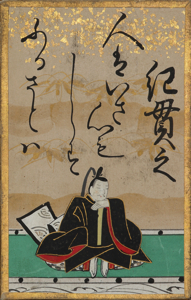 紀貫之
人はいさ心も
しらす
ふるさとハ